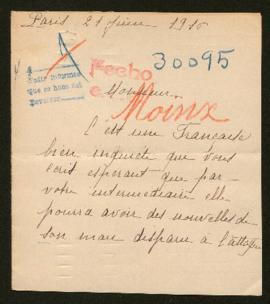 Paris 21 1916
30095
Fecho
Pedir informes
que se haga del
Monsieur
Moinx
C'est une Française
bien inquiète que vous
écrit espérant que par
votre intermédiaire elle
pourra avoir des nouvelles de
son mari disparu à l'attaque